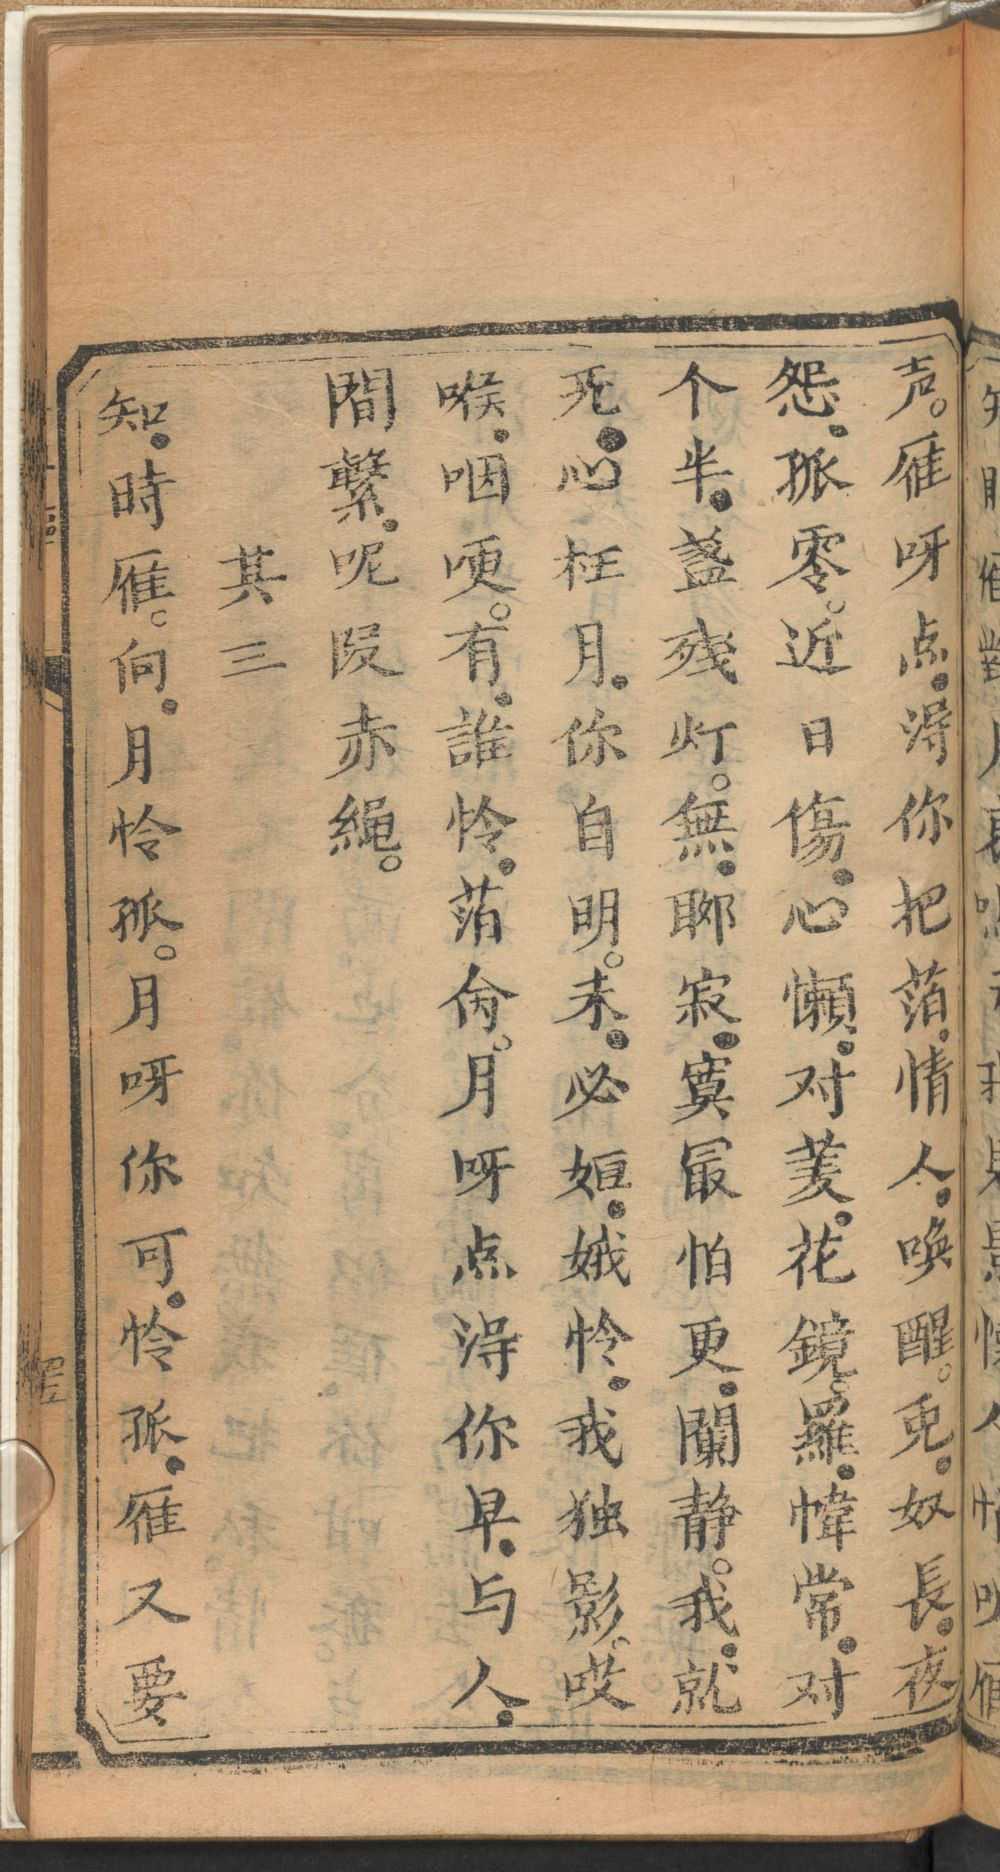 声。雁呀点.淂你把萡.情人.唤醒。免.奴長.夜
怨.孤零。近日傷.心懶.对菱.花鏡。羅.幃常.对
个半.盞残灯。無.聊寂.寞最怕更.闌静。我.就
死.心枉月.你自明。未.必姮.娥怜.我独影。哎
喉.咽哽。有.誰怜.萡倖。月呀点淂你早.与人.
間繫.呢叚赤繩。
其三
知.時雁。向.月怜孤。月呀你可.怜孤.雁又要